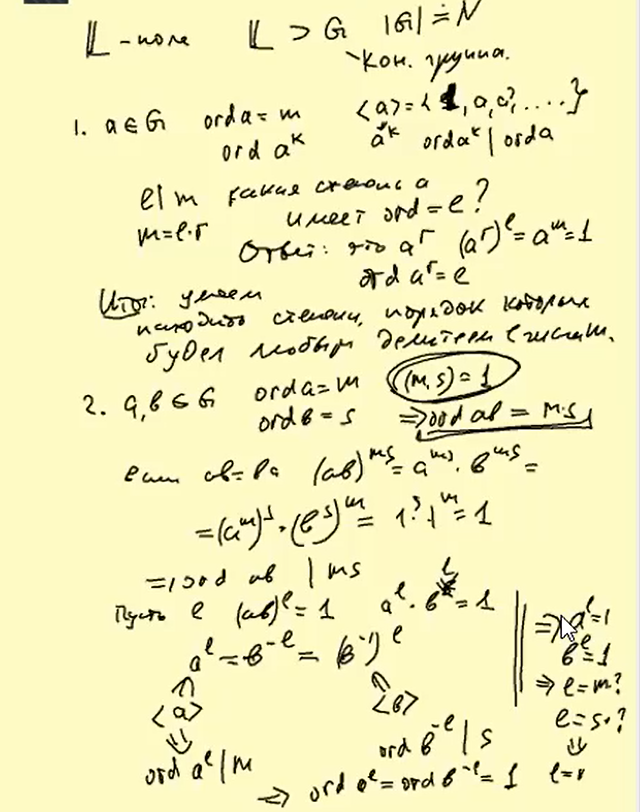 𝕃 - поле 𝕃 ⊃ G |G| ≐ N
кон. группа.
1. a ∈ G ord a = m <a> = { 1, a, a², ....}
ord aᵏ aᵏ ord aᵏ | ord a
l | m какая степень a
m = l·r имеет ord = l?
Ответ: это aʳ (aʳ)ˡ = aᵐ = 1
ord aʳ = l
Итог: умеем
находить степени, порядок которых
будет любым делителем числа m.
2. a, b ∈ G ord a = m (m, s) = 1
ord b = s ⇒ ord ab = m·s
если ab = ba (ab)ᵐˢ = aᵐˢ · bᵐˢ =
= (aᵐ)ˢ · (bˢ)ᵐ = 1ˢ · 1ᵐ = 1
⇒ ord ab | ms
Пусть l (ab)ˡ = 1 aˡ · bˡ = 1
aˡ = b⁻ˡ = (b⁻¹)ˡ
<a> <b>
ord b⁻ˡ | s
ord aˡ | m
⇒ ord aˡ = ord b⁻ˡ = 1
⇒ aˡ = 1
bˡ = 1
⇒ l = m·?
l = s·?
⇓